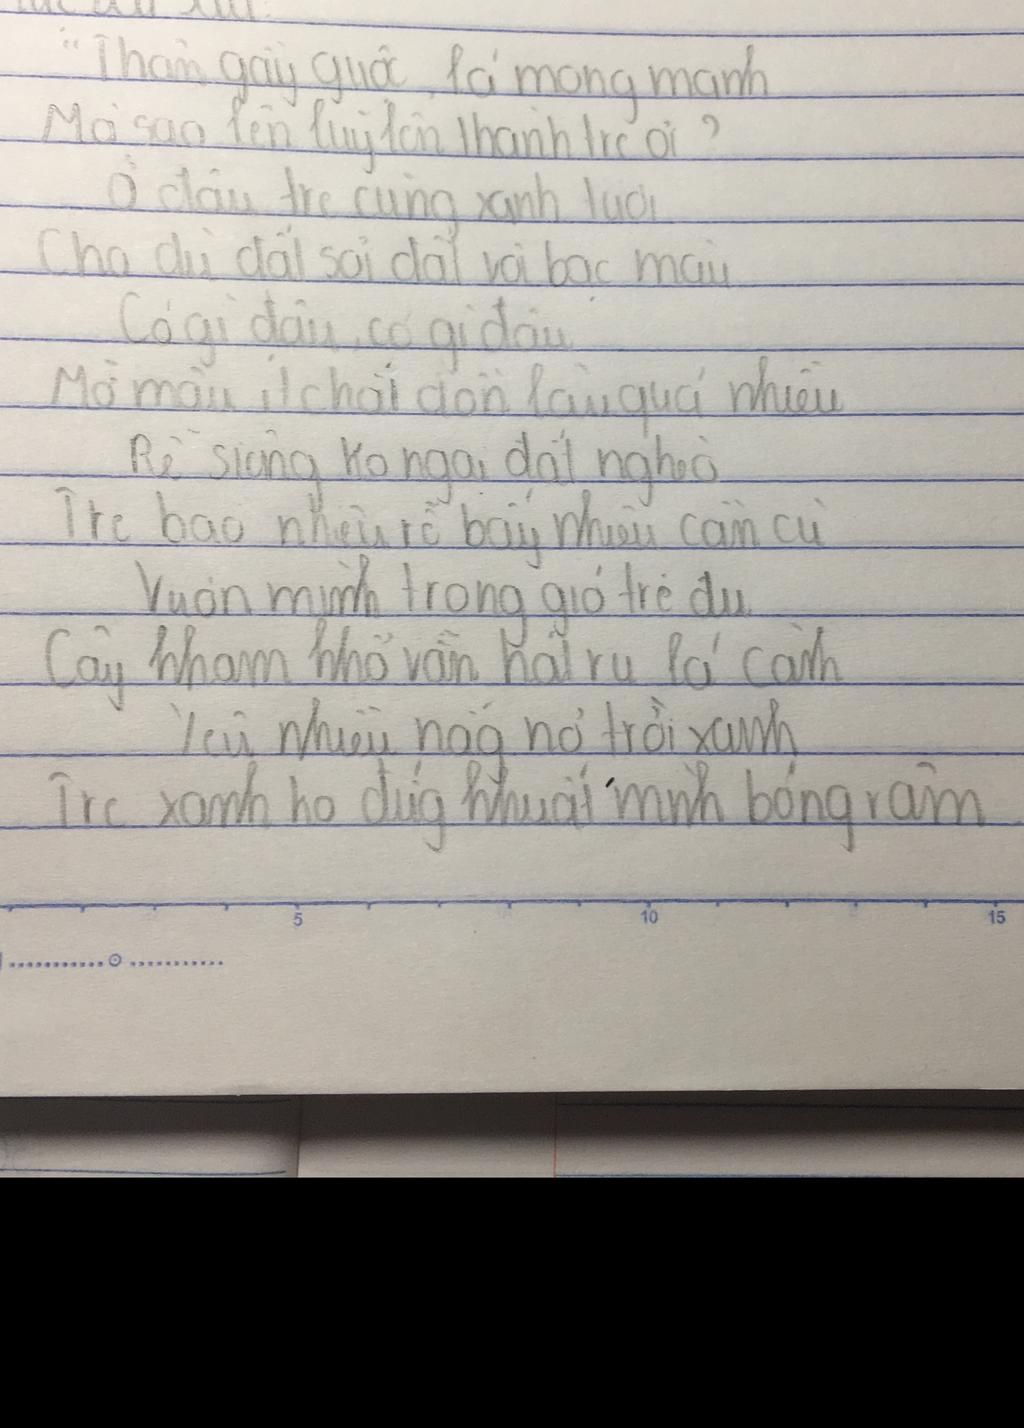 "Thân gầy guộc, lá mong manh
Mà sao lên luỹ lên thành tre ơi?
Ở đâu tre cũng xanh tươi
Cho dù đất sỏi đất vôi bạc màu
Có gì đâu, có gì đâu
Mỡ màu ít chất dồn lâu quá nhiều
Rễ siêng ko ngại đất nghèo
Tre bao nhiêu rễ bấy nhiêu cần cù
Vươn mình trong gió tre đu
Cây kham khổ vẫn hát ru lá cành
Yêu nhiều nắg nỏ trời xanh
Tre xanh ko đứg khuất mình bóng râm
5 10 15